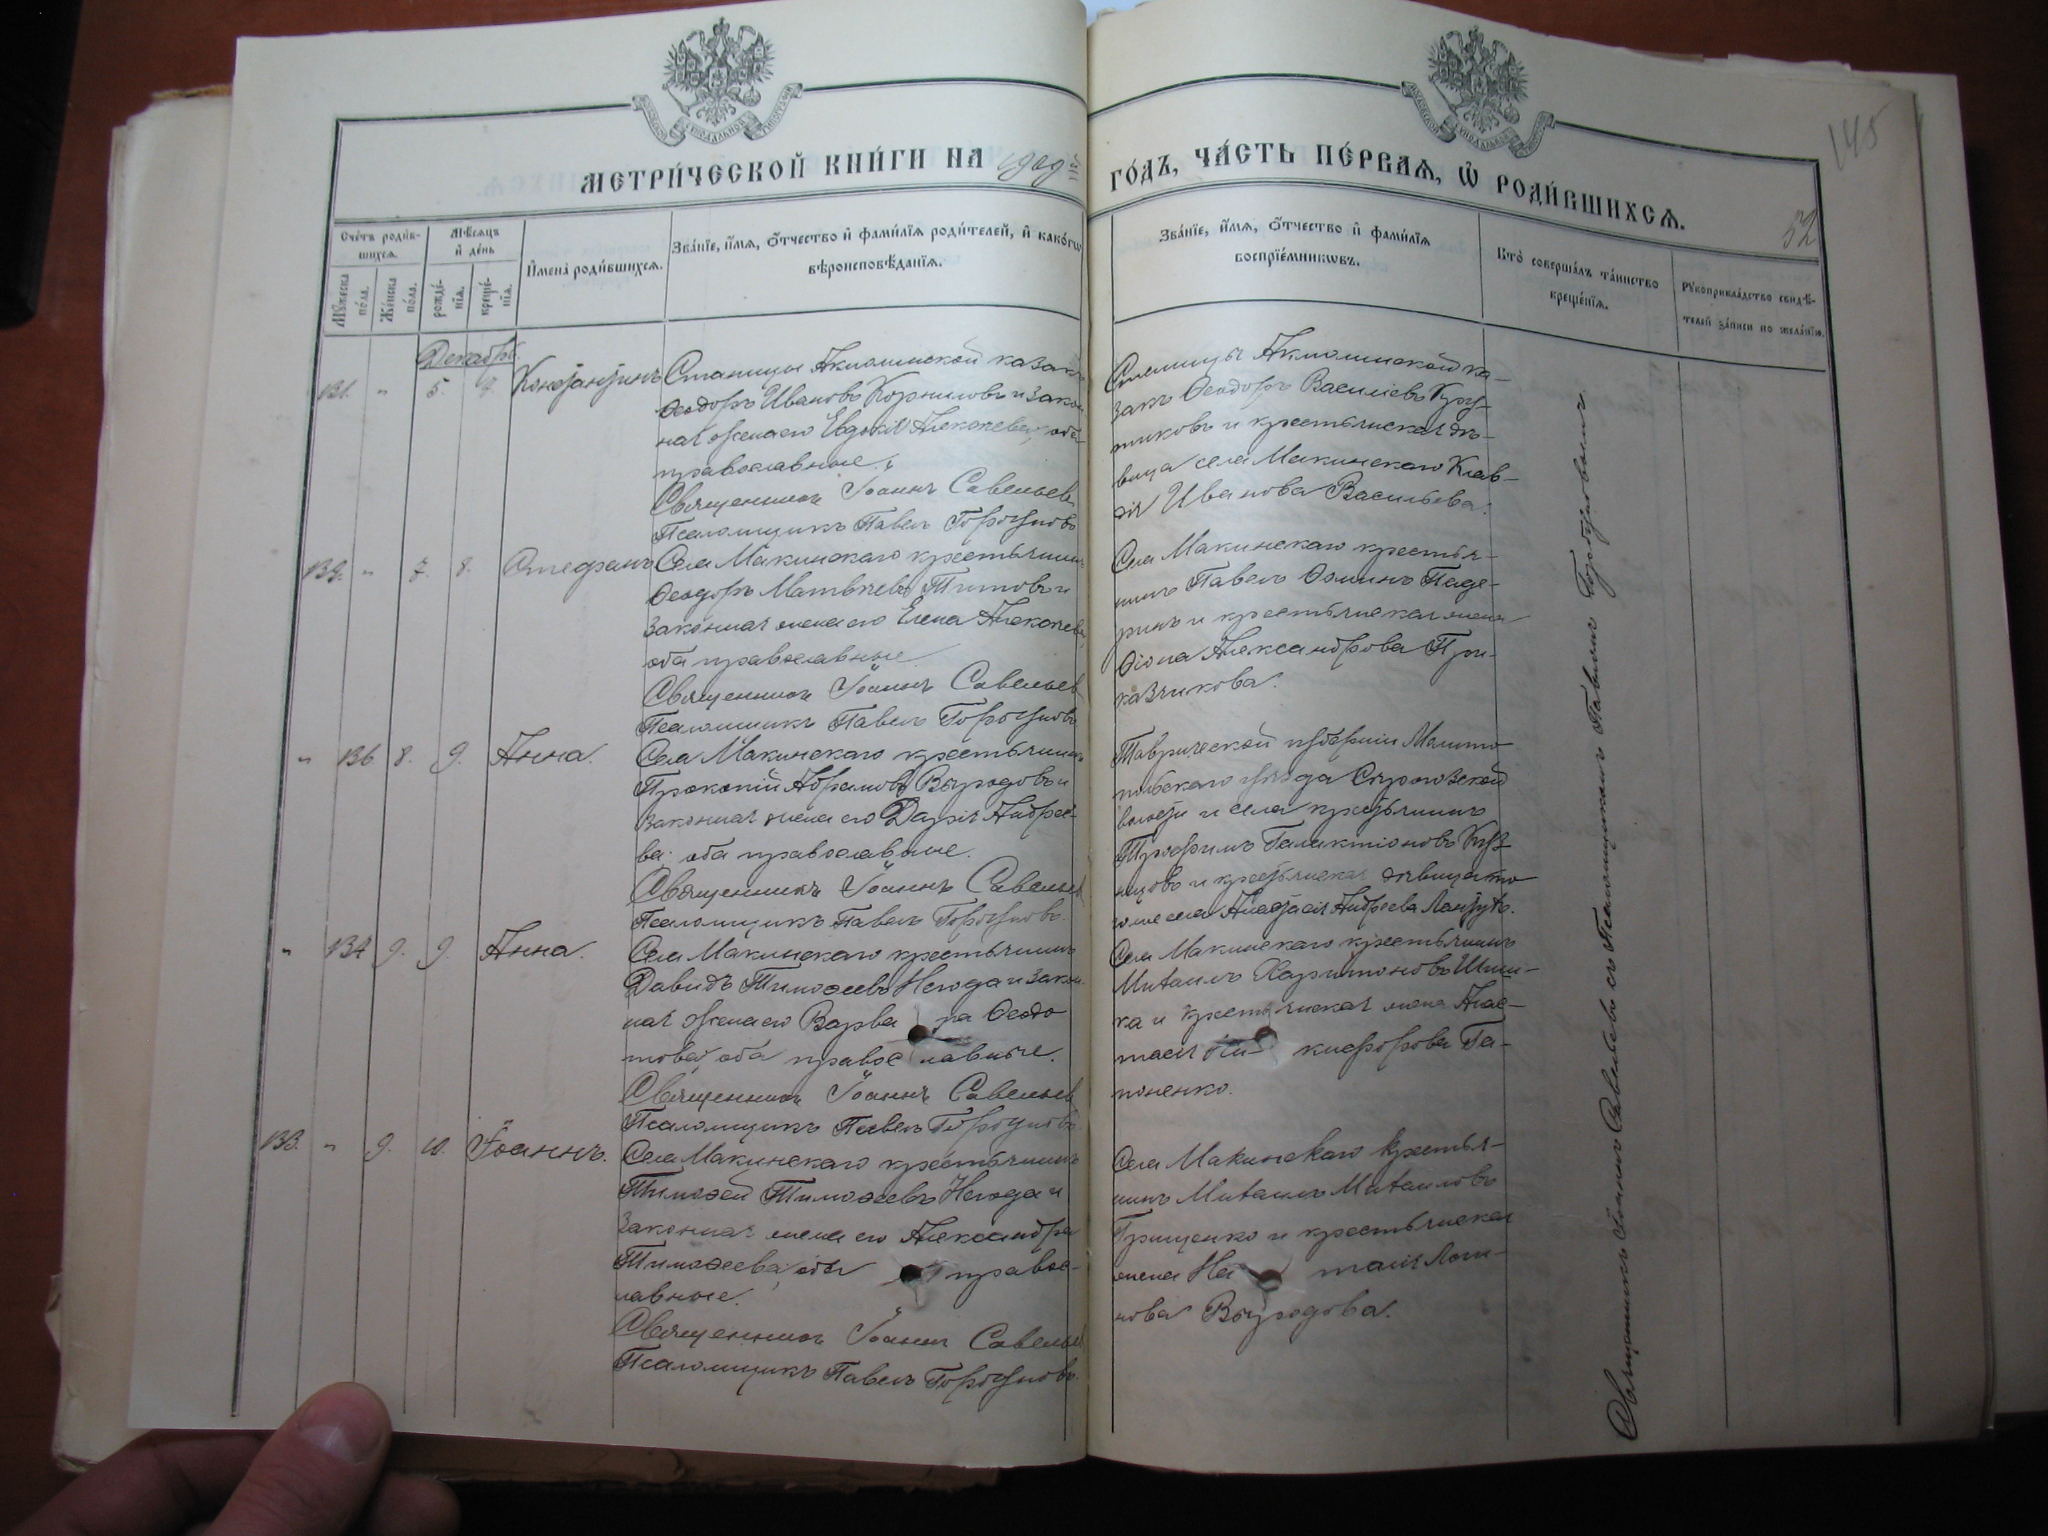 МЕТРИ́ЧЕСКОЙ КНИ́ГИ НА 1909й
ГО́ДЪ, ЧА́СТЬ ПЕ́РВАѦ, Ѡ РОДИ́ВШИХСѦ.
145
52
Сче́тъ роди́в-
шихсѧ.
Мѣ́сѧцъ
и҆ де́нь
Мꙋ́жеска
по́ла.
Же́нска
по́ла.
рожде́-
нїѧ.
креще́-
нїѧ.
И҆мена̀ роди́вшихсѧ.
Зва́нїе, и҆́мѧ, ѻ҆́тчество и҆ фами́лїѧ роди́телей, и҆ како́гѡ
вѣроисповѣ́данїѧ.
Зва́нїе, и҆́мѧ, ѻ҆́тчество и҆ фами́лїѧ
воспрїе́мникѡвъ.
Кто̀ соверша́лъ та́инство
креще́нїѧ.
Рꙋкоприкла́дство свидѣ́-
телей за́писи по жела́нїю.
Декабрь.
131. " 5. 7. Константинъ
Станицы Акмолинской казакъ
Ѳеодоръ Ивановъ Корниловъ и закон-
ная жена его Евдокія Алексѣева, оба
православные.
Священникъ Іоаннъ Савельевъ
Псаломщикъ Павелъ Горбуновъ
Станицы Акмолинской ка-
закъ Ѳеодоръ Василіевъ Кру-
тиковъ и крестьянская дѣ-
вица села Макинскаго Клав-
дія Иванова Васильева.
132. " 7. 8. Стефанъ
Села Макинскаго крестьянинъ
Ѳеодоръ Матвѣевъ Титовъ и
законная жена его Елена Алексѣева
оба православные.
Священникъ Іоаннъ Савельевъ
Псаломщикъ Павелъ Горбуновъ
Села Макинскаго крестья-
нинъ Павелъ Ѳоминъ Паде-
ринъ и крестьянская жена
Ѳіона Александрова При-
казчикова.
" 136 8. 9. Анна.
Села Макинскаго крестьянинъ
Прокопій Абрамовъ Выродовъ и
законная жена его Дарія Андрее-
ва, оба православные.
Священникъ Іоаннъ Савельевъ
Псаломщикъ Павелъ Горбуновъ.
Таврической губерніи Мелито-
польскаго уѣзда
волости и села крестьянинъ
Трофимъ Галактіоновъ Куз-
нецовъ и крестьянская дѣвица того
же села Анастасія Андреева
" 134 9. 9. Анна.
Села Макинскаго крестьянинъ
Давидъ Тимоѳеевъ Негода и закон-
ная жена его Варвара Ѳеодо-
това, оба православные.
Священникъ Іоаннъ Савельевъ
Псаломщикъ Павелъ Горбуновъ
Села Макинскаго крестьянинъ
Михаилъ Харитоновъ
ка и крестьянская жена Анас-
тасія Никифорова Га-
поненко.
133. " 9. 10. Іоаннъ.
Села Макинскаго крестьянинъ
Тимоѳей Тимоѳеевъ Негода и
законная жена его Александра
Тимоѳеева, оба правос-
лавные.
Священникъ Іоаннъ Савельевъ
Псаломщикъ Павелъ Горбуновъ.
Села Макинскаго крестья-
нинъ Михаилъ Михаиловъ
Грищенко и крестьянская
жена Наталія Логи-
нова Выродова.
Священникъ Іоаннъ Савельевъ съ Псаломщикомъ Павломъ Горбуновымъ.